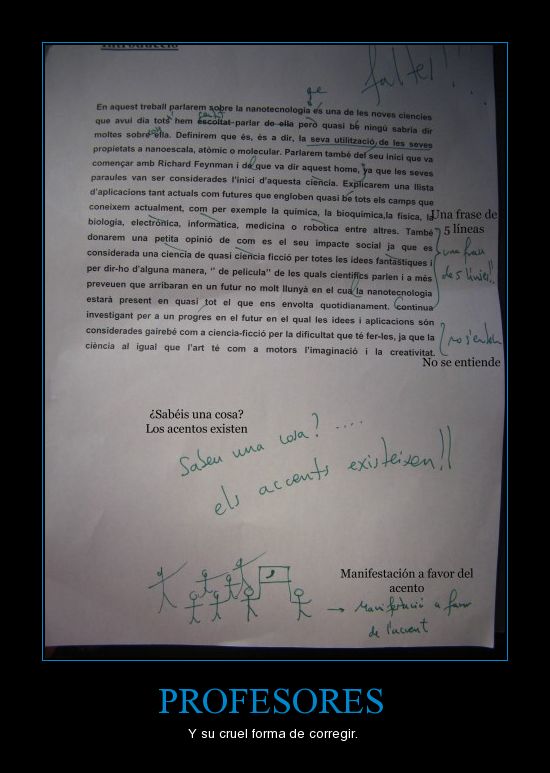 Introducció
faltes!!!...
que
En aquest treball parlarem sobre la nanotecnologia és una de les noves ciencies
que avui dia tots hem escoltat parlar de ella però quasi bé ningú sabria dir
moltes sobre ella. Definirem que és, és a dir, la seva utilització de les seves
propietats a nanoescala, atòmic o molecular. Parlarem també del seu inici que va
començar amb Richard Feynman i de que va dir aquest home, ya que les seves
paraules van ser considerades l'inici d'aquesta ciència. Explicarem una llista
d'aplicacions tant actuals com futures que engloben quasi bé tots els camps que
coneixem actualment, com per exemple la química, la bioquímica,la física, la
biologia, electrònica, informatica, medicina o robotica entre altres. També
donarem una petita opinió de com es el seu impacte social ja que es
considerada una ciencia de quasi ciència ficció per totes les idees fantàstiques i
per dir-ho d'alguna manera, " de pelicula" de les quals cientifics parlen i a més
preveuen que arribaran en un futur no molt llunyà en el cual la nanotecnologia
estarà present en quasi tot el que ens envolta quotidianament. Continua
investigant per a un progres en el futur en el qual les idees i aplicacions són
considerades gairebé com a ciencia-ficció per la dificultat que té fer-les, ja que la
ciència al igual que l'art té com a motors l'imaginació i la creativitat.
Una frase de
5 líneas
una frase
de 5 línies!!
no s'entén
No se entiende
¿Sabéis una cosa?
Los acentos existen
Sabeu una cosa? ....
els accents existeixen!!
Manifestación a favor del
acento
→ Manifestació a favor
de l'accent
PROFESORES
Y su cruel forma de corregir.